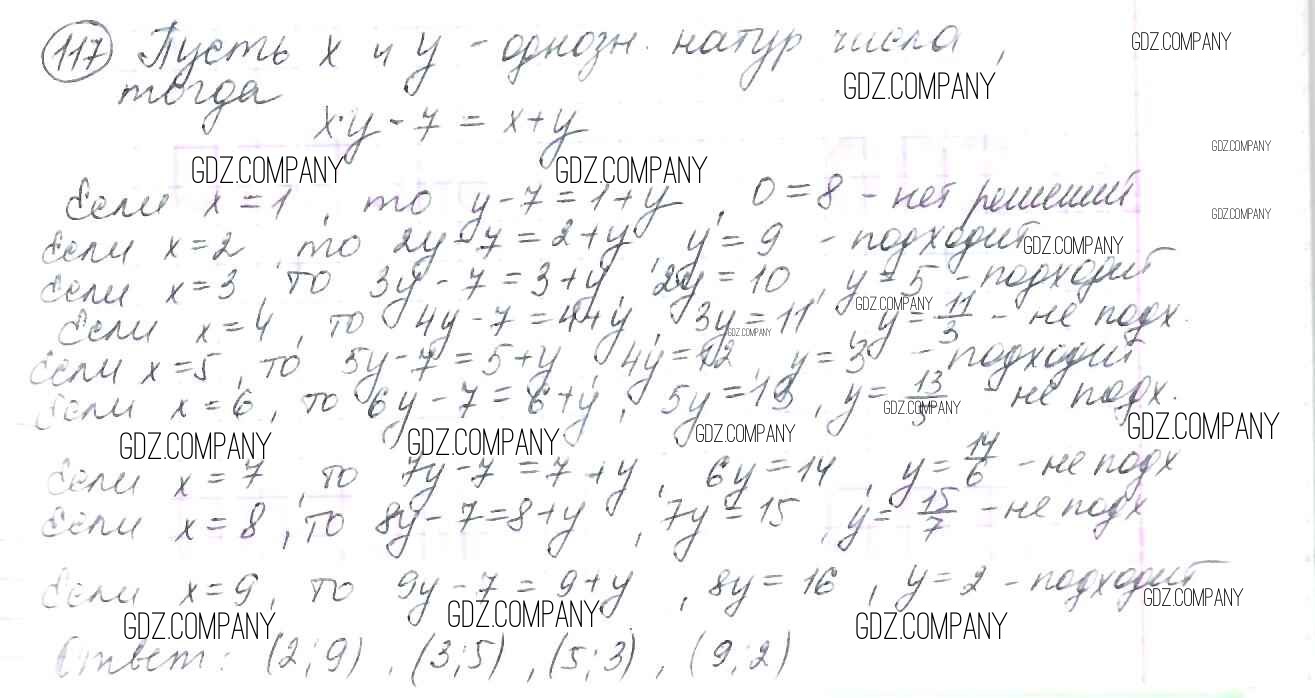 117 Пусть x и y - однозн. натур числа, GDZ.COMPANY
тогда GDZ.COMPANY
x·y - 7 = x+y GDZ.COMPANY
GDZ.COMPANY GDZ.COMPANY
Если x = 1, то y - 7 = 1 + y, 0 = 8 - нет решений GDZ.COMPANY
Если x = 2, то 2y - 7 = 2 + y, y = 9 - подходит GDZ.COMPANY
Если x = 3, то 3y - 7 = 3 + y, 2y = 10, y = 5 - подходит GDZ.COMPANY
Если x = 4, то 4y - 7 = 4+y, 3y = 11, y = 11/3 - не подх. GDZ.COMPANY
Если x = 5, то 5y - 7 = 5 + y, 4y = 12, y = 3 - подходит
Если x = 6, то 6y - 7 = 6 + y, 5y = 13, y = 13/5 - не подх. GDZ.COMPANY
GDZ.COMPANY GDZ.COMPANY GDZ.COMPANY GDZ.COMPANY
Если x = 7, то 7y - 7 = 7 + y, 6y = 14, y = 14/6 - не подх
Если x = 8, то 8y - 7 = 8 + y, 7y = 15, y = 15/7 - не подх
Если x = 9, то 9y - 7 = 9 + y, 8y = 16, y = 2 - подходит
GDZ.COMPANY GDZ.COMPANY GDZ.COMPANY GDZ.COMPANY
Ответ: (2; 9), (3; 5), (5; 3), (9; 2)